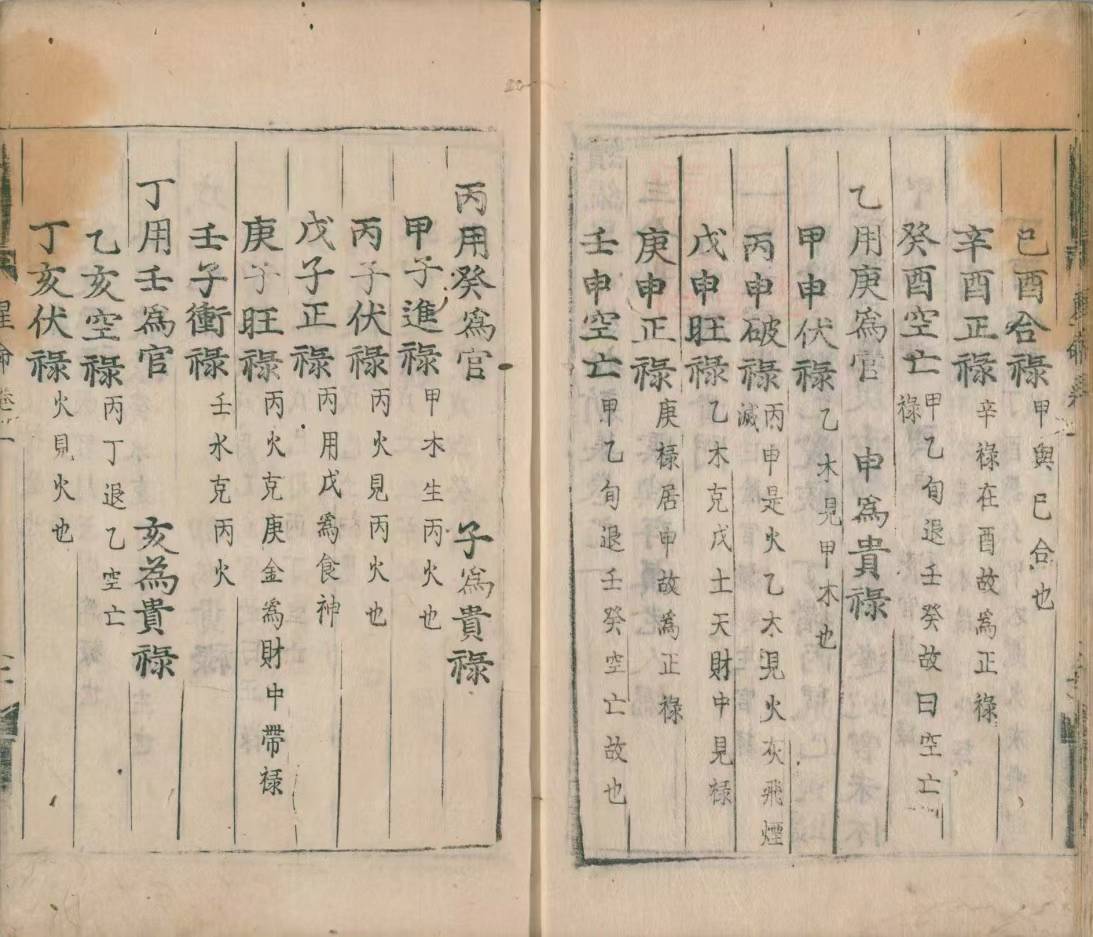 己酉合禄 甲與己合也
辛酉正禄 辛禄在酉故為正禄
癸酉空亡 甲乙旬退壬癸故曰空亡
禄
乙用庚爲官 申爲貴禄
甲申伏禄 乙木見甲木也
丙申破禄 丙申是火乙木見火灰飛煙
滅
戊申旺禄 乙木克戊土天財中見禄
庚申正禄 庚禄居申故爲正禄
壬申空亡 甲乙旬退壬癸空亡故也
丙用癸爲官 子爲貴禄
甲子進禄 甲木生丙火也
丙子伏禄 丙火見丙火也
戊子正禄 丙用戊爲食神
庚子旺禄 丙火克庚金爲財中帶禄
壬子衝禄 壬水克丙火
丁用壬爲官 亥為貴禄
乙亥空禄 丙丁退乙空亡
丁亥伏禄 火見火也